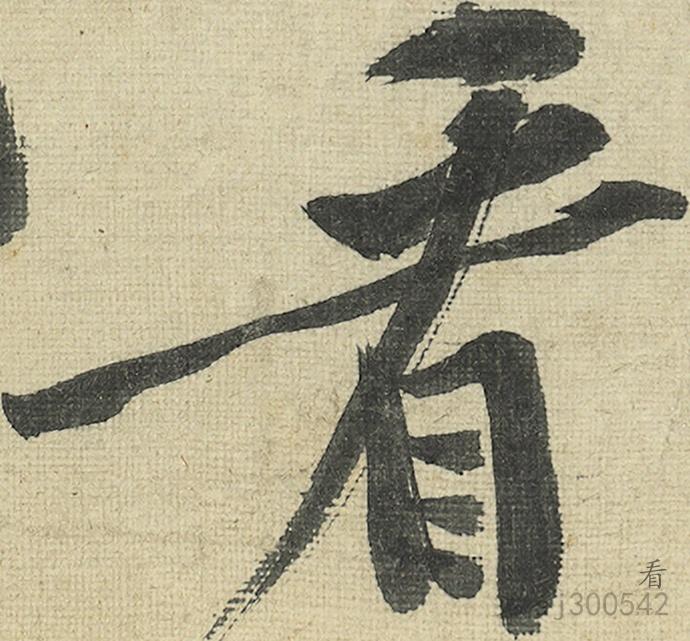 看
看
j300542